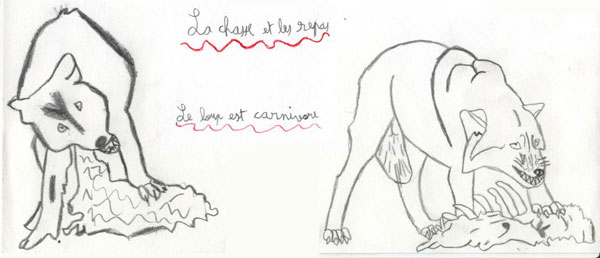 La chasse et les repas
Le loup est carnivore